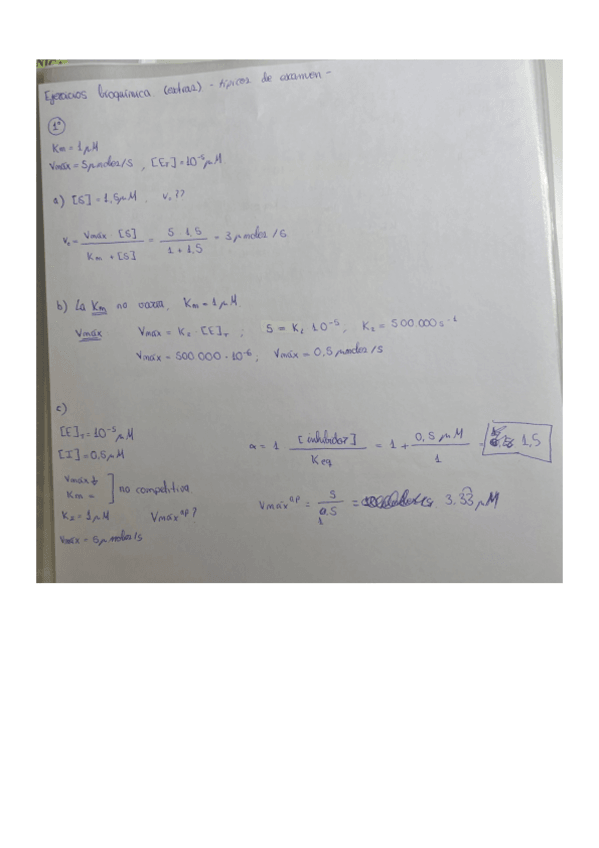 Ejercicios bioquímica (extras) - típicos de examen -
1º
Km = 1 μM
Vmáx = 5 μmoles/s , [ET] = 10⁻⁵ μM.
a) [S] = 1,5 μM , v₀ ??
v₀ = Vmáx · [S] / Km + [S] = 5 · 1,5 / 1 + 1,5 = 3 μmoles /s
b) La Km no varía, Km = 1 μM.
Vmáx Vmáx = K₂ · [E]T ; 5 = K₂ · 10⁻⁵ ; K₂ = 500.000 s⁻¹
Vmáx = 500 000 · 10⁻⁶ ; Vmáx = 0,5 μmoles/s
c)
[E]T = 10⁻⁵ μM
[I] = 0,5 μM
Vmáx ↓
Km =
] no competitiva
KI = 1 μM Vmáx ᵃᵖ ?
Vmáx = 5 μmoles/s
a = 1 [inhibidor] / Keq = 1 + 0,5 μM / 1 = 1,5
Vmáx ᵃᵖ = 5 / 1,5 = 3.33 μM